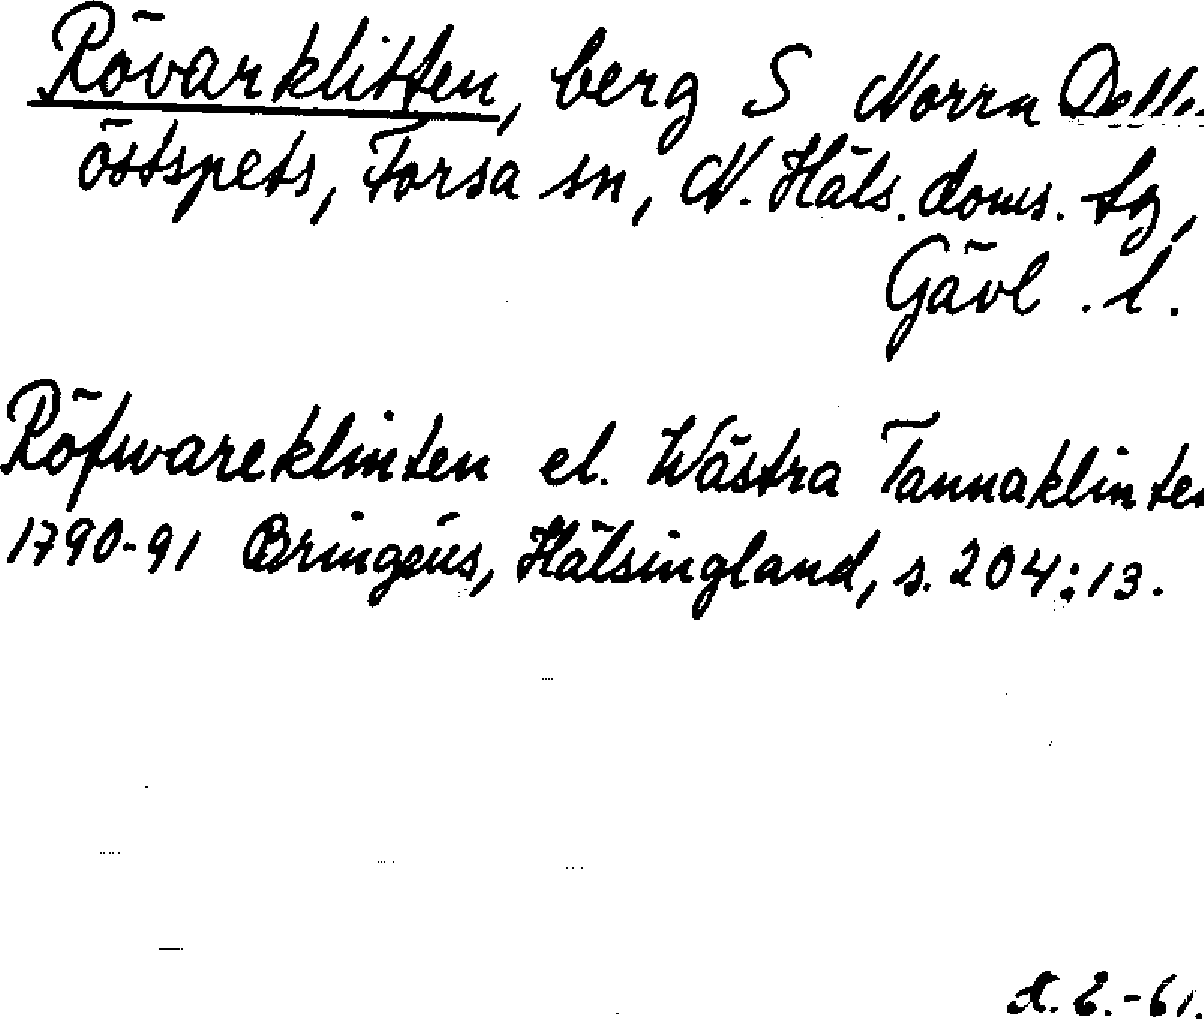 Rövarklitten, berg S Norra Delle
östspets, Forsa sn, N. Häls. doms. tg,
Gävl. l.
Röfwareklinten el. Wästra Tannaklinten
1790-91 Bringéus, Hälsingland, s. 204:13.
-61.